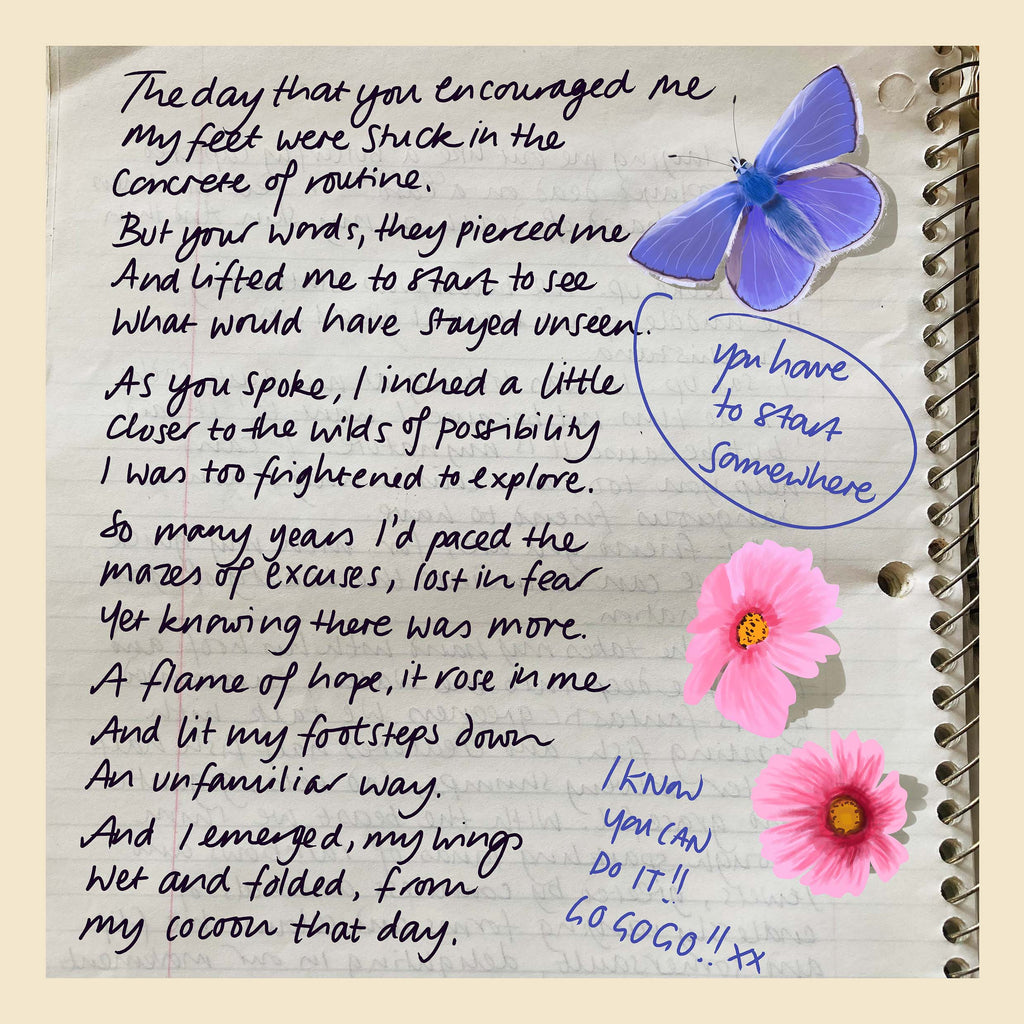 The day that you encouraged me
My feet were stuck in the
Concrete of routine.
But your words, they pierced me
And lifted me to start to see
What would have stayed unseen.
As you spoke, I inched a little
Closer to the wilds of possibility
I was too frightened to explore.
So many years I'd paced the
mazes of excuses, lost in fear
Yet knowing there was more.
A flame of hope, it rose in me
And lit my footsteps down
An unfamiliar way.
And I emerged, my wings
Wet and folded, from
my cocoon that day.
you have
to start
somewhere
I KNOW
YOU CAN
DO IT!!
GO GO GO!! xx